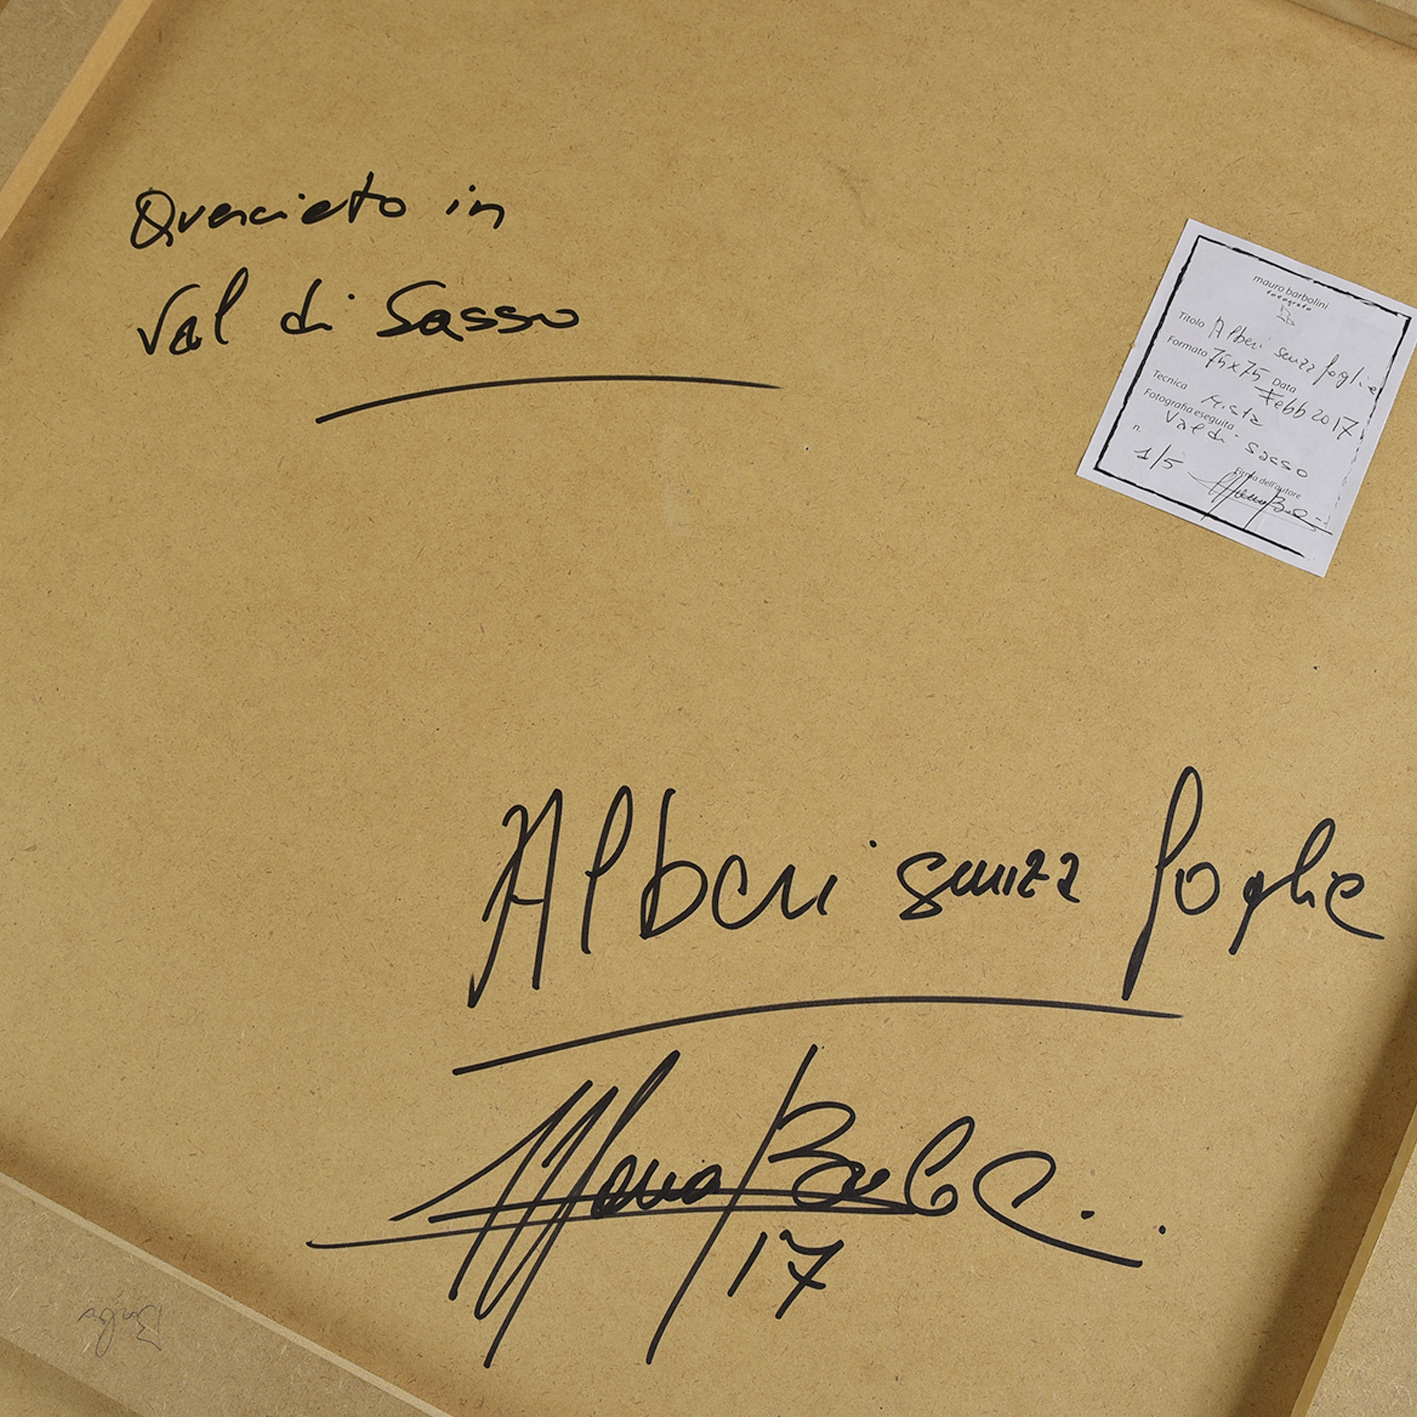 Quercieto in
Val di Sasso
mauro barbolini
fotografo
Titolo Alberi senza foglie
Formato 75x75 Data Febb 2017
Tecnica Mista
Fotografia eseguita Val di Sasso
n. 1/5
Firma dell'autore
Alberi senza foglie
17